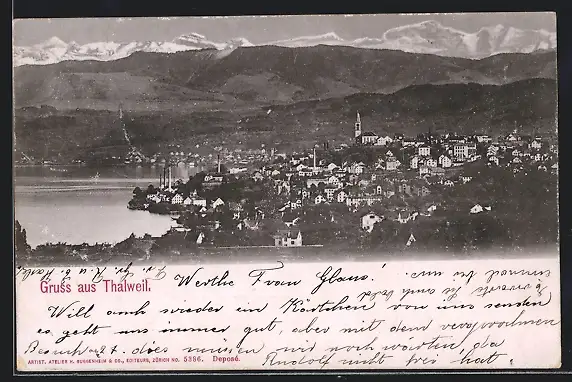 Gruss aus Thalweil.
Werthe Frau Glaus!
Will auch wieder ein Kärtchen von uns senden
es geht uns immer gut, aber mit dem versprochnen
Besuch dies müssen wir noch warten, da
Rudolf nicht frei hat.
ARTIST. ATELIER H. GUGGENHEIM & CO., EDITEURS, ZÜRICH NO. 5386. Deposé.